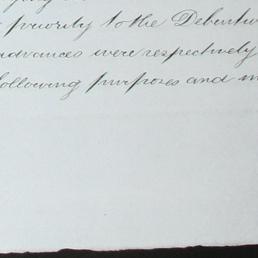 priority to the Debentu
advances were respectively
following purposes and in